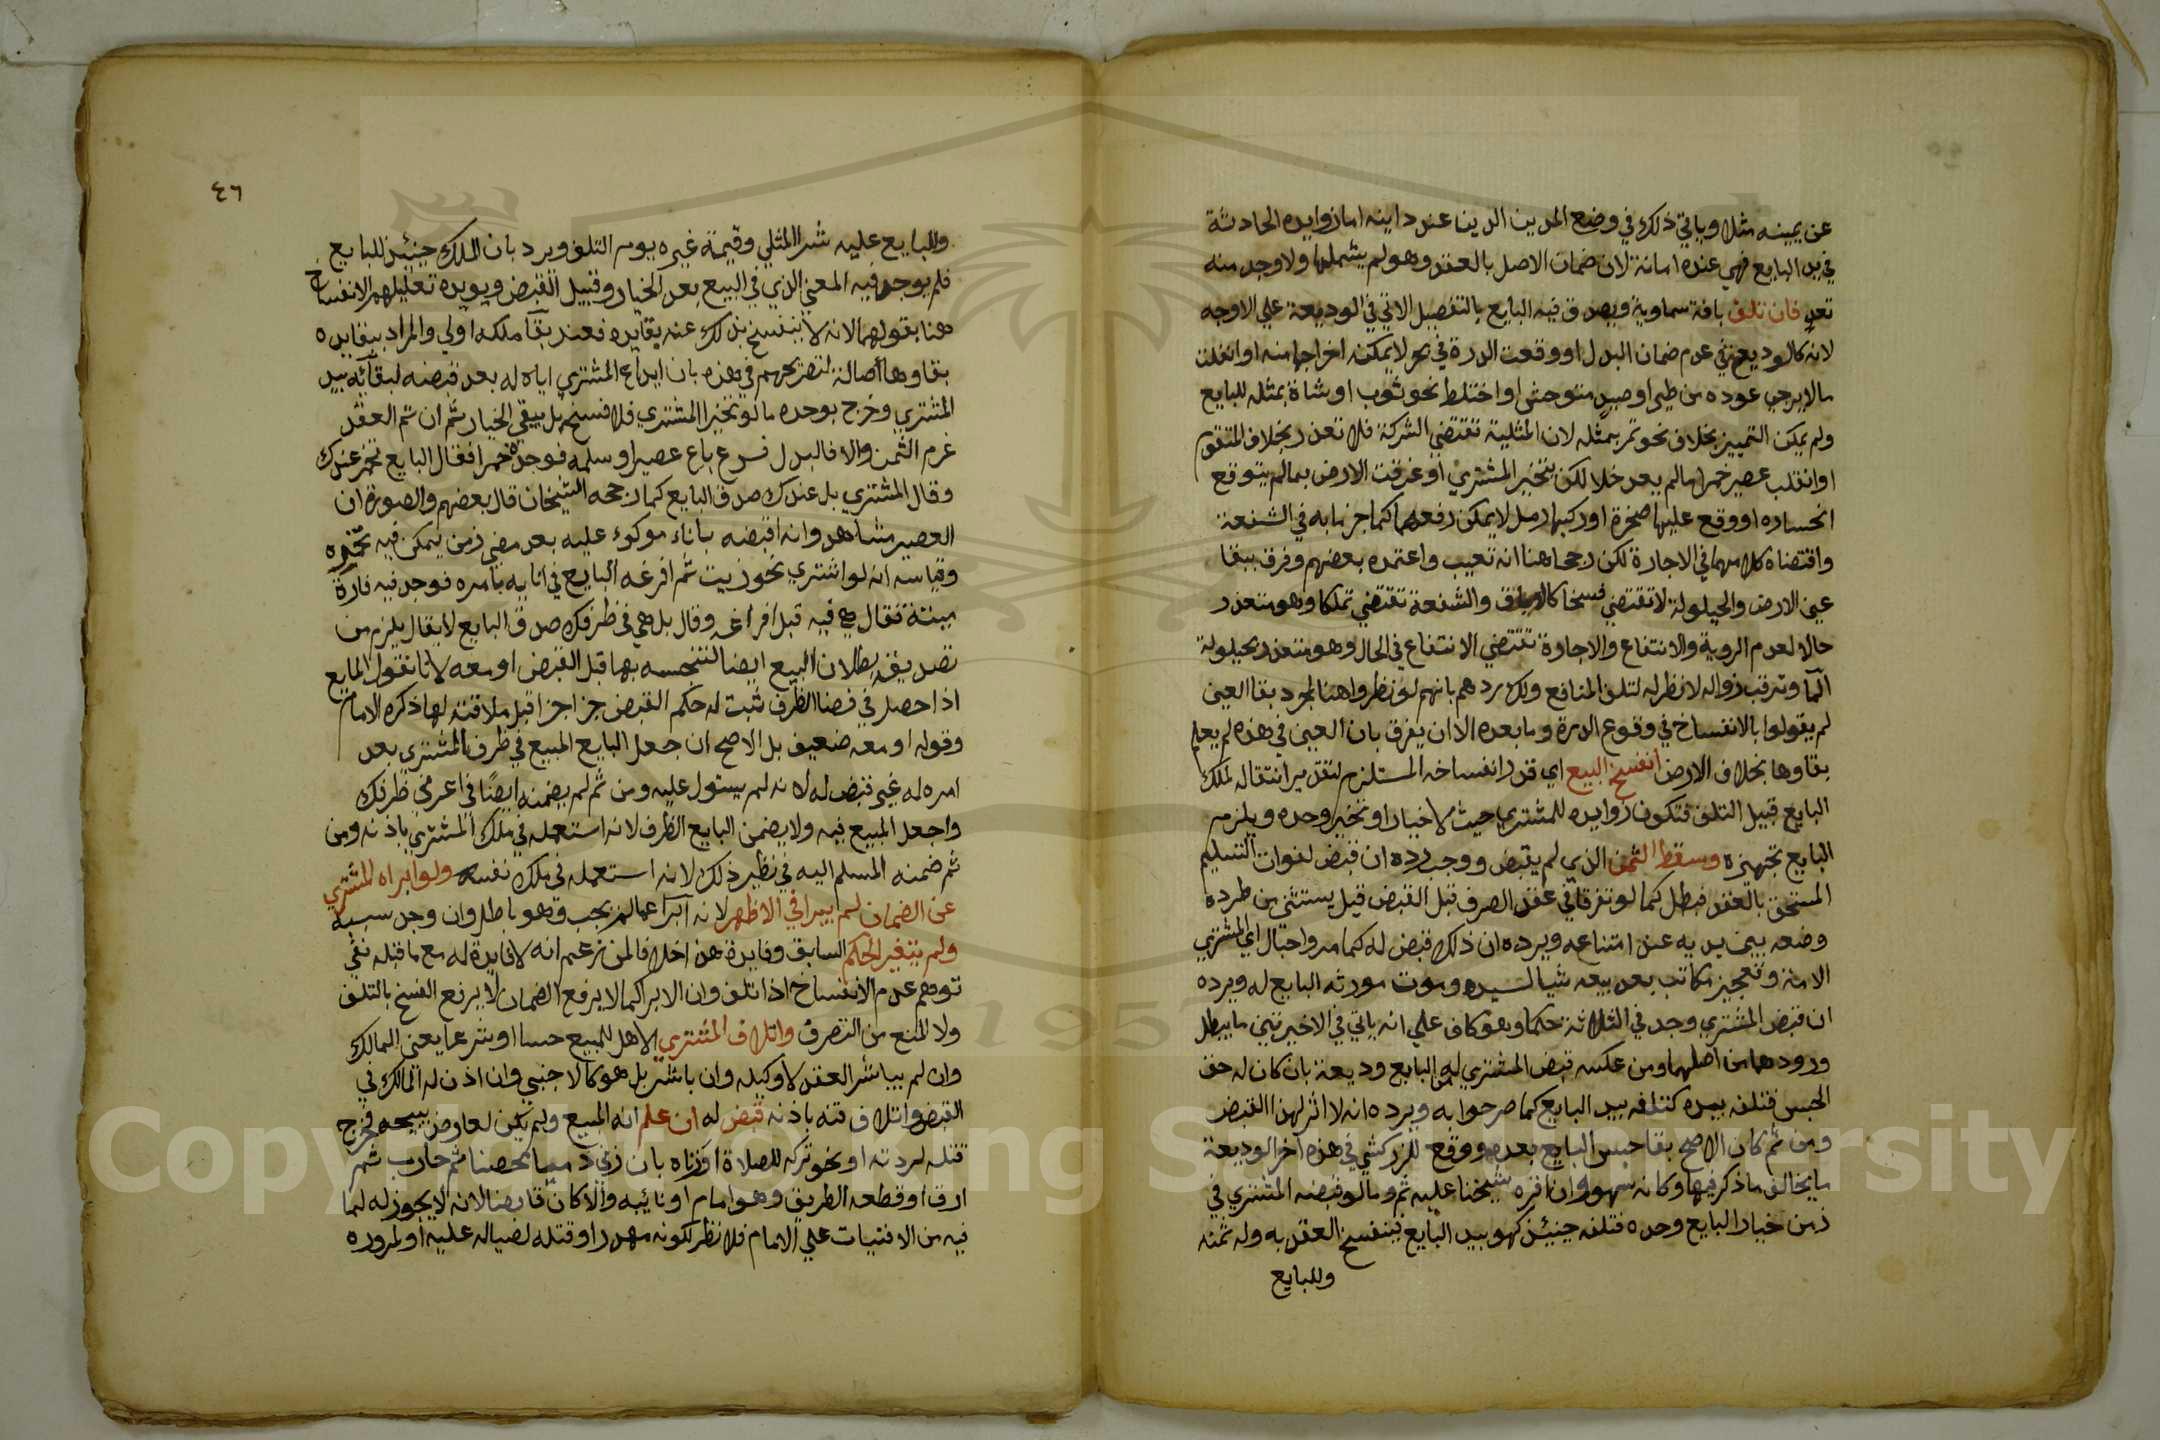 عن يمينه مثلا وياتي ذلك في وضع المدين الدين عند داينه اما زوايده الحادثة
في يد البايع فهي عنده امانة لان ضمان الاصل بالعقد وهو لم يشملها ولا وجد منه
تعد فان تلف بافة سماوية ويصدق فيه البايع بالتفصيل الاتي في الوديعة علي الاوجه
لانه كالوديع في عدم ضمان البدل او وقعت الدرة في بحر لا يمكن اخراجها منه او انفلت
مالا يرجي عوده من طير او صيد متوحش او اختلط نحو ثوب او شاة بمثله للبايع
ولم يمكن التمييز بخلاف نحو تمر بمثله لان المثلية تقتضي الشركة فلا تعذر بخلاف المتقوم
او انقلب عصير خمرا ما لم يعد خلا لكن يتخير المشتري او غرقت الارض بما لم يتوقع
انحساره او وقع عليها صخرة او ركبها رمل لا يمكن رفعهما كما جزما به في الشفعة
واقتضاه كلامهما في الاجارة لكن رجحا هنا انه تعيب واعتمده بعضهم وفرق ببقا
عين الارض والحيلولة لا تقتضي فسخا كالاباق والشفعة تقتضي تملكا وهو متعذر
حالا لعدم الروية والانتفاع والاجارة تقتضي الانتفاع في الحال وهو متعذر بحيلولة
الما وترقب زواله لا نظر له لتلف المنافع ولك ردهم بانهم لو نظروا هنا لمجرد بقا العين
لم يقولوا بالانفساخ في وقوع الدرة وما بعده الا ان يفرق بان العين في هذه لم يعلم
بقاوها بخلاف الارض انفسخ البيع اي قدر انفساخه المستلزم لتقدير انتقاله لملك
البايع قبيل التلف فتكون زوايده للمشتري حيث لا خيار او تخير وحده ويلزم
البايع تجهيزه وسقط الثمن الذي لم يقبض ووجب رده ان قبض لفوات التسليم
المستحق بالعقد فبطل كما لو تفرقا في عقد الصرف قبل القبض قيل يستثني من طرده
وضعه بين يديه عند امتناعه ويرده ان ذلك قبض له كما مر واحبال ابي المشتري
الامة وتعجيز مكاتب بعد بيعه شيا لسيده وموت مورثه البايع له ويرده
ان قبض المشتري وجد في الثلاثة حكما وهو كاف علي انه ياتي في الاخيرتين ما يبطل
ورودهما من اصلهما ومن عكسه قبض المشتري له من البايع وديعة بان كان له حق
الحبس فتلفه بيده كتلفه بيد البايع كما صرحوا به ويرده انه لا اثر لهذا القبض
ومن ثم كان الاصح بقا حبس البايع بعده ووقع للزركشي في هذه اخر الوديعة
ما يخالف ما ذكر فيها وكانه سهو وان اقره شيخنا عليه ثم وما لو قبضه المشتري في
زمن خيار البايع وحده فتلفه حينئذ كهو بيد البايع فينفسخ العقد به وله ثمنه
وللبايع
٤٦
وللبايع عليه شرا المثلي وقيمة غيره يوم التلف ويرد بان الملك حينئذ للبايع
فلم يوجد فيه المعني الذي في البيع بعد الخيار وقبيل القبض ويويده تعليلهم الانفساخ
هنا بقولهما لانه لا ينفسخ بذلك عند بقايده فعند بقا ملكه اولي والمراد ببقايده
بقاوها اصالة لتصريحهم في هذه بان ايداع المشتري اياه له بعد قبضه لبقايه بيد
المشتري وخرج بوحده ما لو تخير المشتري فلا فسخ بل يبقي الخيار ثم ان تم العقد
غرم الثمن والا فالبدل فرع باع عصيرا وسلمه فوجده خمرا فقال البايع تخمر عندك
وقال المشتري بل عندك صدق البايع كما رجحه الشيخان قال بعضهم والصورة ان
العصير مشاهد وانه اقبضه باناء موكوء عليه بعد مضي زمن يمكن فيه تخمره
وقياسه انه لو اشتري نحو زيت ثم افرغه البايع في انايه بامره فوجد فيه فارة
ميتة فقال هي فيه قبل افراغه وقال بل هي في ظرفك صدق البايع لا يقال يلزم من
تصديقه بطلان البيع ايضا لتنجسه بها قبل القبض او معه لانا نقول المايع
اذا حصل في فضا الظرف ثبت له حكم القبض جزا جزا قبل ملاقته لها ذكره الامام
وقوله او معه ضعيف بل الاصح ان جعل البايع المبيع في ظرف المشتري بعد
امره له غير قبض له لانه لم يستول عليه ومن ثم لم يضمنه ايضا في اعرني ظرفك
واجعل المبيع فيه ولا يضمن البايع الظرف لانه استعمله في ملك المشتري باذنه ومن
ثم ضمنه المسلم اليه في نظير ذلك لانه استعمله في ملك نفسه ولو ابراه المشتري
عن الضمان لم يبرا في الاظهر لانه ابرا عما لم يجب وهو باطل وان وجد سببه
ولم يتغير الحكم السابق وفايدة هذا خلافا لمن زعم انه لا فايدة له مع ما قبله نفي
توهم عدم الانفساخ اذا تلف وان الابرا كما لا يرفع الضمان لا يرفع الفسخ بالتلف
ولا المنع من التصرف واتلاف المشتري الاهل للمبيع حسا او شرعا يعني المالك
وان لم يباشر العقد لا وكيله وان باشر بل هو كالاجنبي وان اذن له المالك في
القبض واتلاف قنه باذنه قبض له ان علم انه المبيع ولم يكن لعارض يبيحه فخرج
قتله لردته او نحو تركه للصلاة او زناه بان زني ذميا محصنا ثم حارب ثم
ارق او قطعه الطريق وهو امام او نايبه والا كان قابضا لانه لا يجوز له لما
فيه من الافتيات علي الامام فلا نظر لكونه مهدرا وقتله لصياله عليه او لمروره